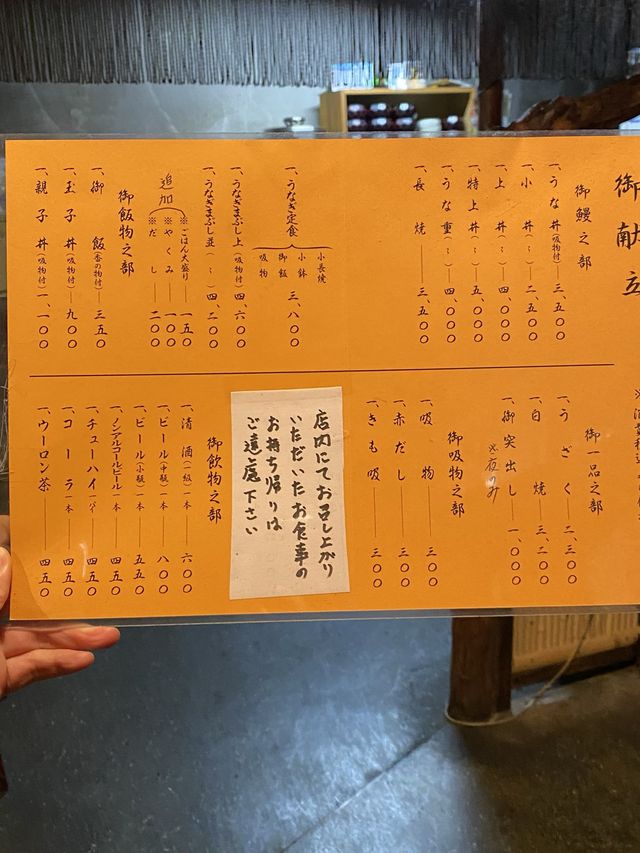 御献立
御鰻之部
一、うな丼(吸物付)三、五〇〇
一、小丼(〃)二、五〇〇
一、上丼(〃)四、〇〇〇
一、特上丼(〃)五、〇〇〇
一、うな重(〃)四、〇〇〇
一、長焼 三、五〇〇
一、うなぎ定食 三、八〇〇
小長焼
小鉢
御飯
吸物
一、うなぎまぶし上(吸物付)四、六〇〇
一、うなぎまぶし並(〃)四、二〇〇
追加
※ごはん大盛り 一五〇
※やくみ 一〇〇
※だし 二〇〇
御飯物之部
一、御飯(香の物付)三五〇
一、玉子丼(吸物付)九〇〇
一、親子丼(吸物付)一、一〇〇
御一品之部
一、うざく 二、三〇〇
一、白焼 三、二〇〇
一、御突出し 一、〇〇〇
※夜のみ
御吸物之部
一、吸物 三〇〇
一、赤だし 三〇〇
一、きも吸 三〇〇
店内にてお召し上がり
いただいたお食事の
お持ち帰りは
ご遠慮下さい
御飲物之部
一、清酒(一級)一本 六〇〇
一、ビール(中瓶)一本 八〇〇
一、ビール(小瓶)一本 五五〇
一、ノンアルコールビール一本 四五〇
一、チューハイ一パイ 四五〇
一、コーラ一本 四五〇
一、ウーロン茶 四五〇